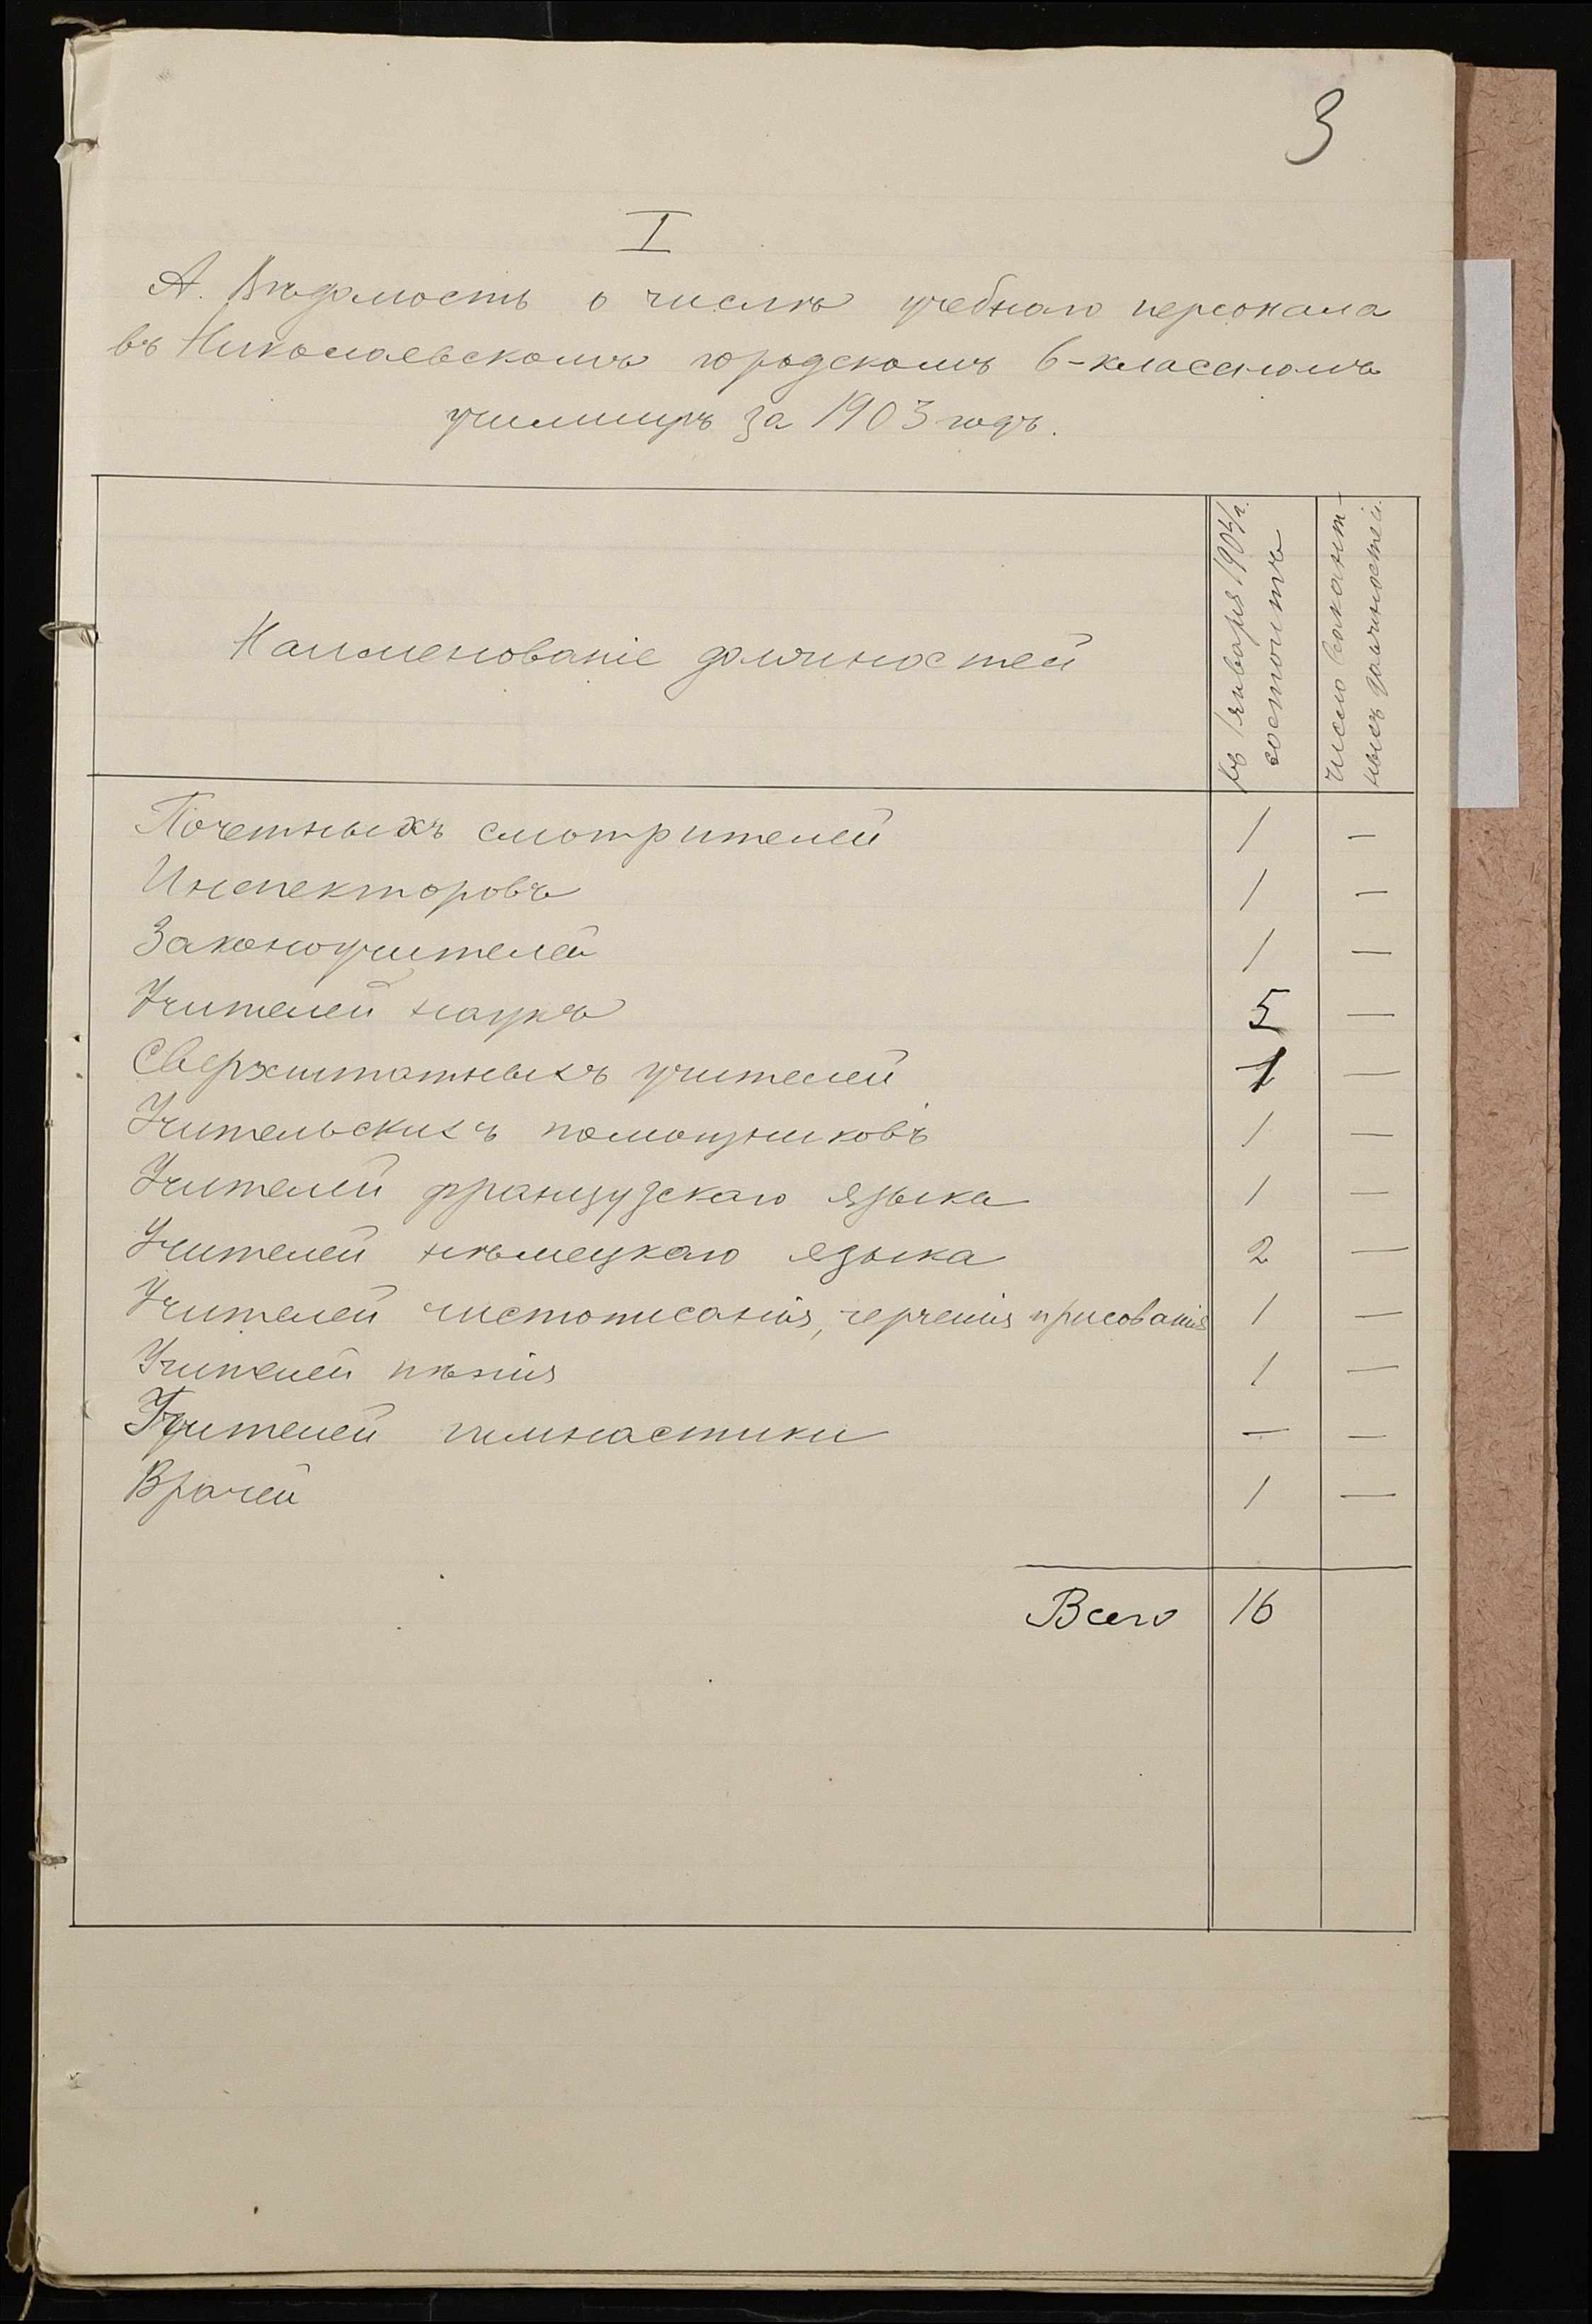 3
I
А. Вѣдомость о числѣ учебнаго персонала
въ Николаевскомъ городскомъ 6-классномъ
училищѣ за 1903 годъ.
Наименованіе должностей
Къ 1 января 1904 г.
состоитъ
Число вакант-
ныхъ должностей.
Почетныхъ смотрителей 1 —
Инспекторовъ 1 —
Законоучителей 1 —
Учителей наукъ 5 —
Сверхштатныхъ учителей 1 —
Учительскихъ помощниковъ 1 —
Учителей французскаго языка 1 —
Учителей нѣмецкаго языка 2 —
Учителей чистописанія, черченія и рисованія 1 —
Учителей пѣнія 1 —
Учителей гимнастики — —
Врачей 1 —
Всего 16